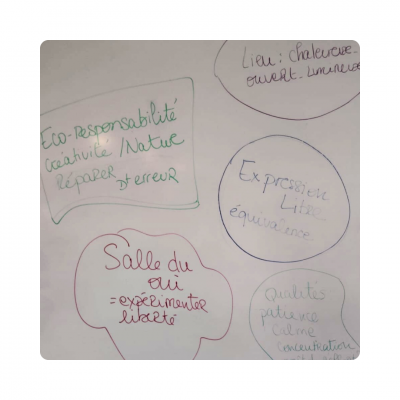 Lieu : chaleureux.
ouvert. lumineux
Eco-responsabilité
créativité / Nature
Réparer Dt erreur
Expression
Libre
équivalence
Salle du
oui
= expérimenter
liberté
Qualités
patience
calme
concentration